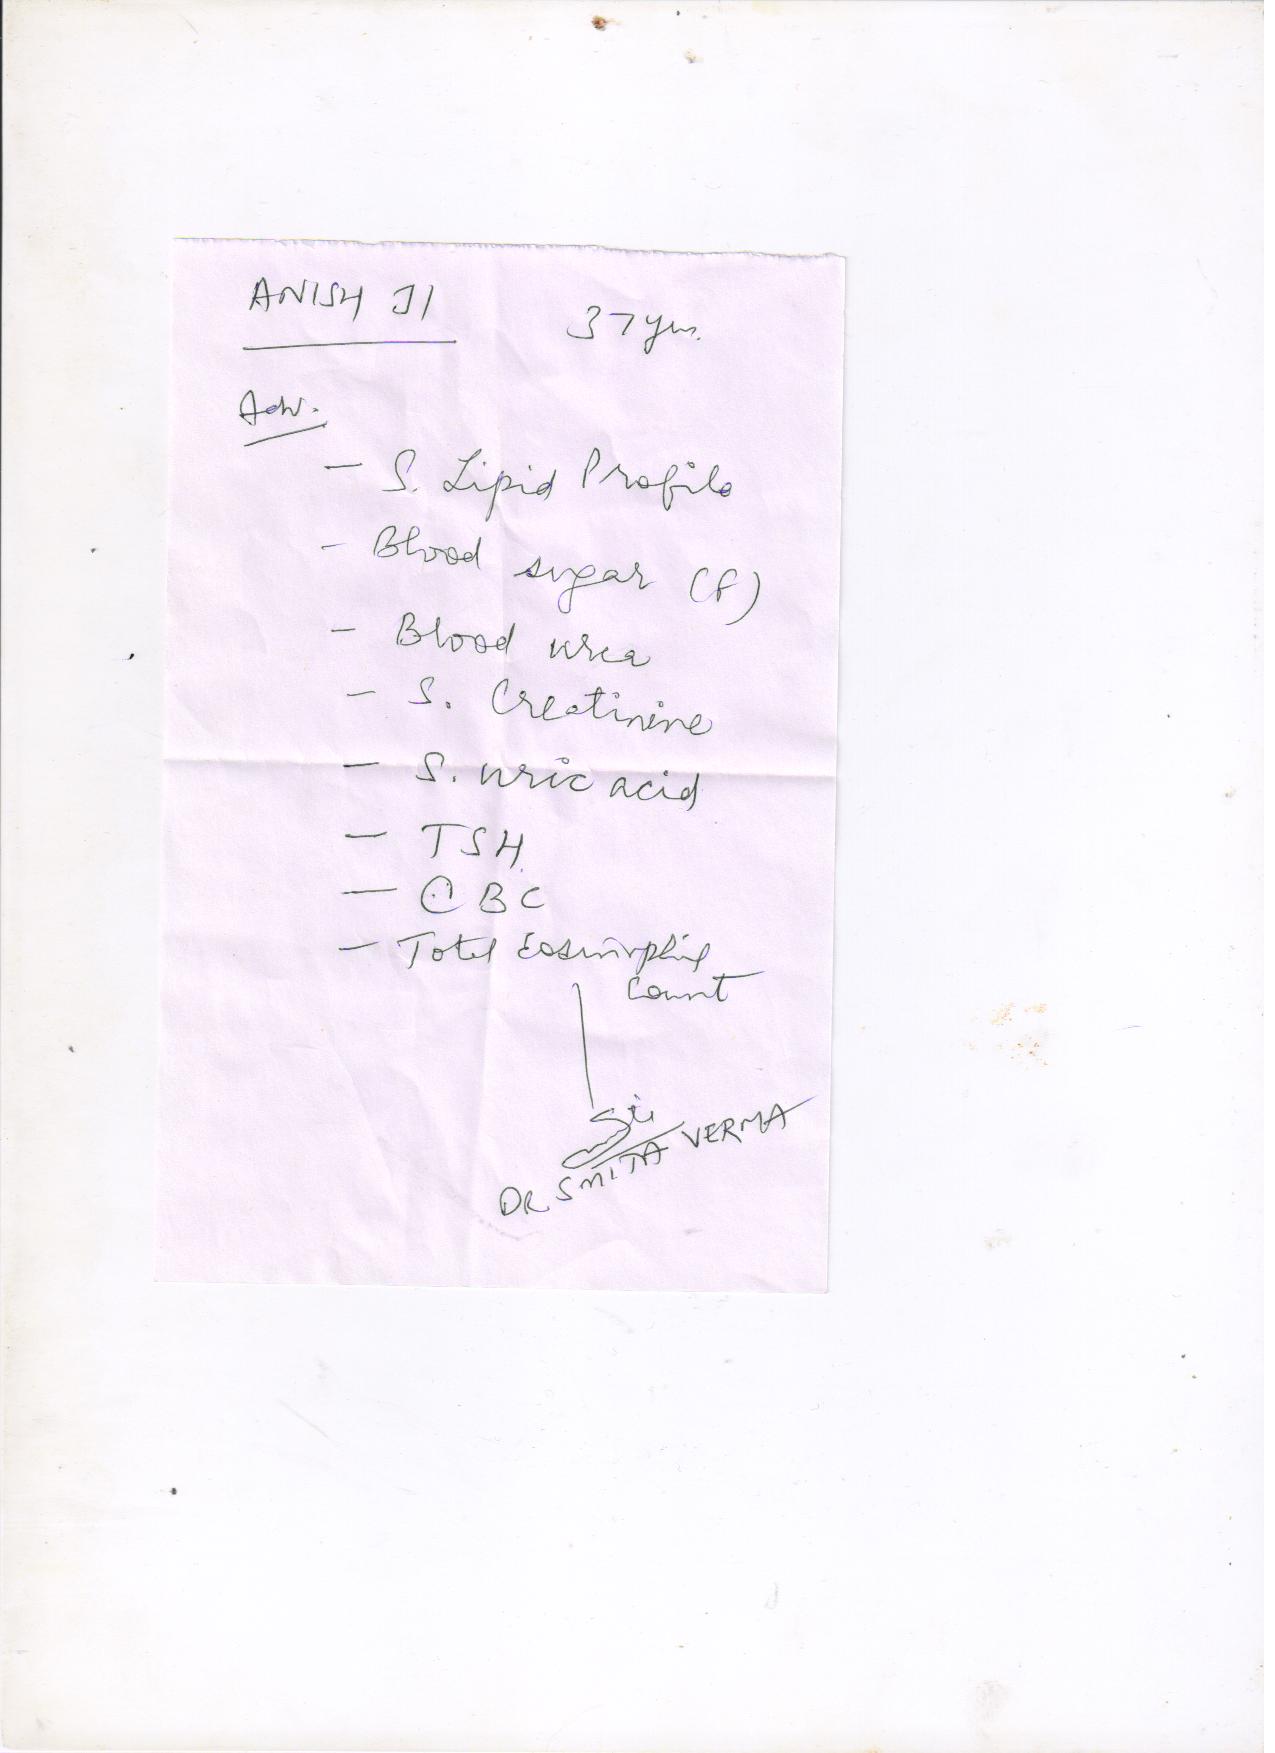 ANISH JI
37 yrs.
Adv.
- S. Lipid Profile
- Blood sugar (f)
- Blood urea
- S. Creatinine
- S. uric acid
- TSH
- CBC
- Total Eosinophil
Count
DR SMITA VERMA